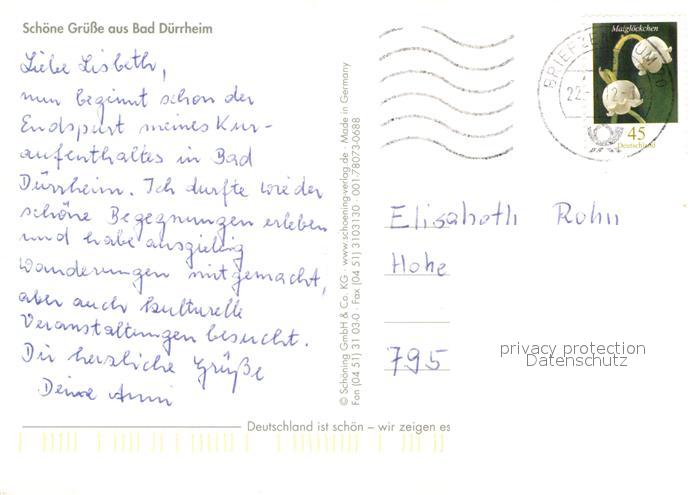 Schöne Grüße aus Bad Dürrheim
Liebe Lisbeth,
nun beginnt schon der
Endspurt meines Kur-
aufenthaltes in Bad
Dürrheim. Ich durfte wieder
schöne Begegnungen erleben
und habe ausgiebig
Wanderungen mitgemacht,
aber auch kulturelle
Veranstaltungen besucht.
Dir herzliche Grüße
Deine Anni
© Schöning GmbH & Co. KG · www.schoening-verlag.de · Made in Germany
Fon (04 51) 31 03-0 · Fax (04 51) 3103130 · 001-78073-0688
Maiglöckchen
45
Deutschland
BRIEFZE
22.
Elisabeth Rohn
Hohe
795
privacy protection
Datenschutz
Deutschland ist schön – wir zeigen es